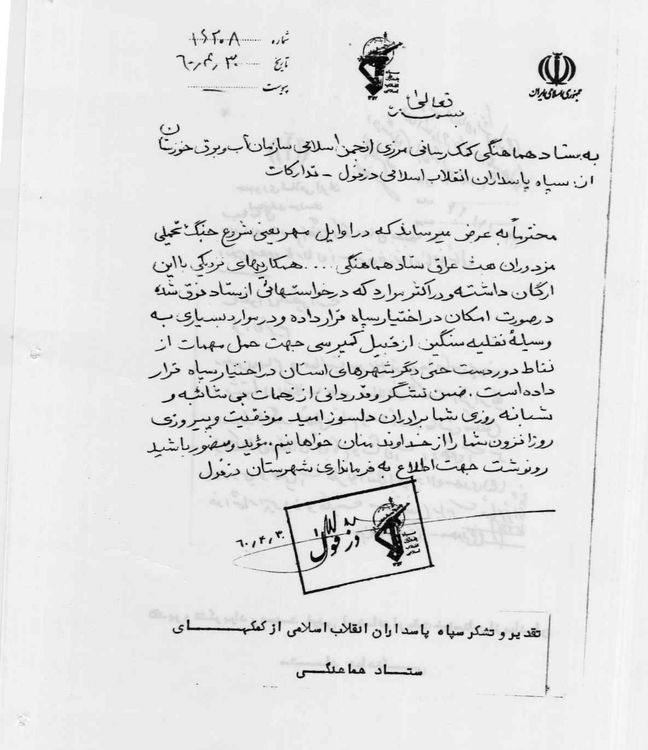 شماره ۱۶۲۰۸
تاریخ ۶۰٫۴٫۳۰
پیوست
جمهوری اسلامی ایران
بسمه تعالی
به: ستاد هماهنگی کمک رسانی مرزی (انجمن اسلامی سازمان آب و برق خوزستان
از: سپاه پاسداران انقلاب اسلامی دزفول - تدارکات
محترماً به عرض میرساند که در اوایل مهر یعنی شروع جنگ تحمیلی
مزدوران بعث عراقی ستاد هماهنگی .... همکاریهای نزدیکی با این
ارگان داشته و در اکثر موارد که درخواستهائی از ستاد فوق شده
در صورت امکان در اختیار سپاه قرار داده و در موارد بسیاری به
وسیلهٔ نقلیه سنگین از قبیل کمپرسی جهت حمل مهمات از
نقاط دور دست حتی دیگر شهرهای استان در اختیار سپاه قرار
داده است. ضمن تشکر و قدردانی از زحمات بی شائبه و
شبانه روزی شما برادران دلسوز امید موفقیت و پیروزی
روز افزون شما را از خداوند منان خواهانیم. مؤید و منصور باشید
رونوشت جهت اطلاع به فرمانداری شهرستان دزفول
دزفول
۶۰٫۴٫۳۰
تقدیر و تشکر سپاه پاسداران انقلاب اسلامی از کمکهــــــای
ستــاد هماهنگــی